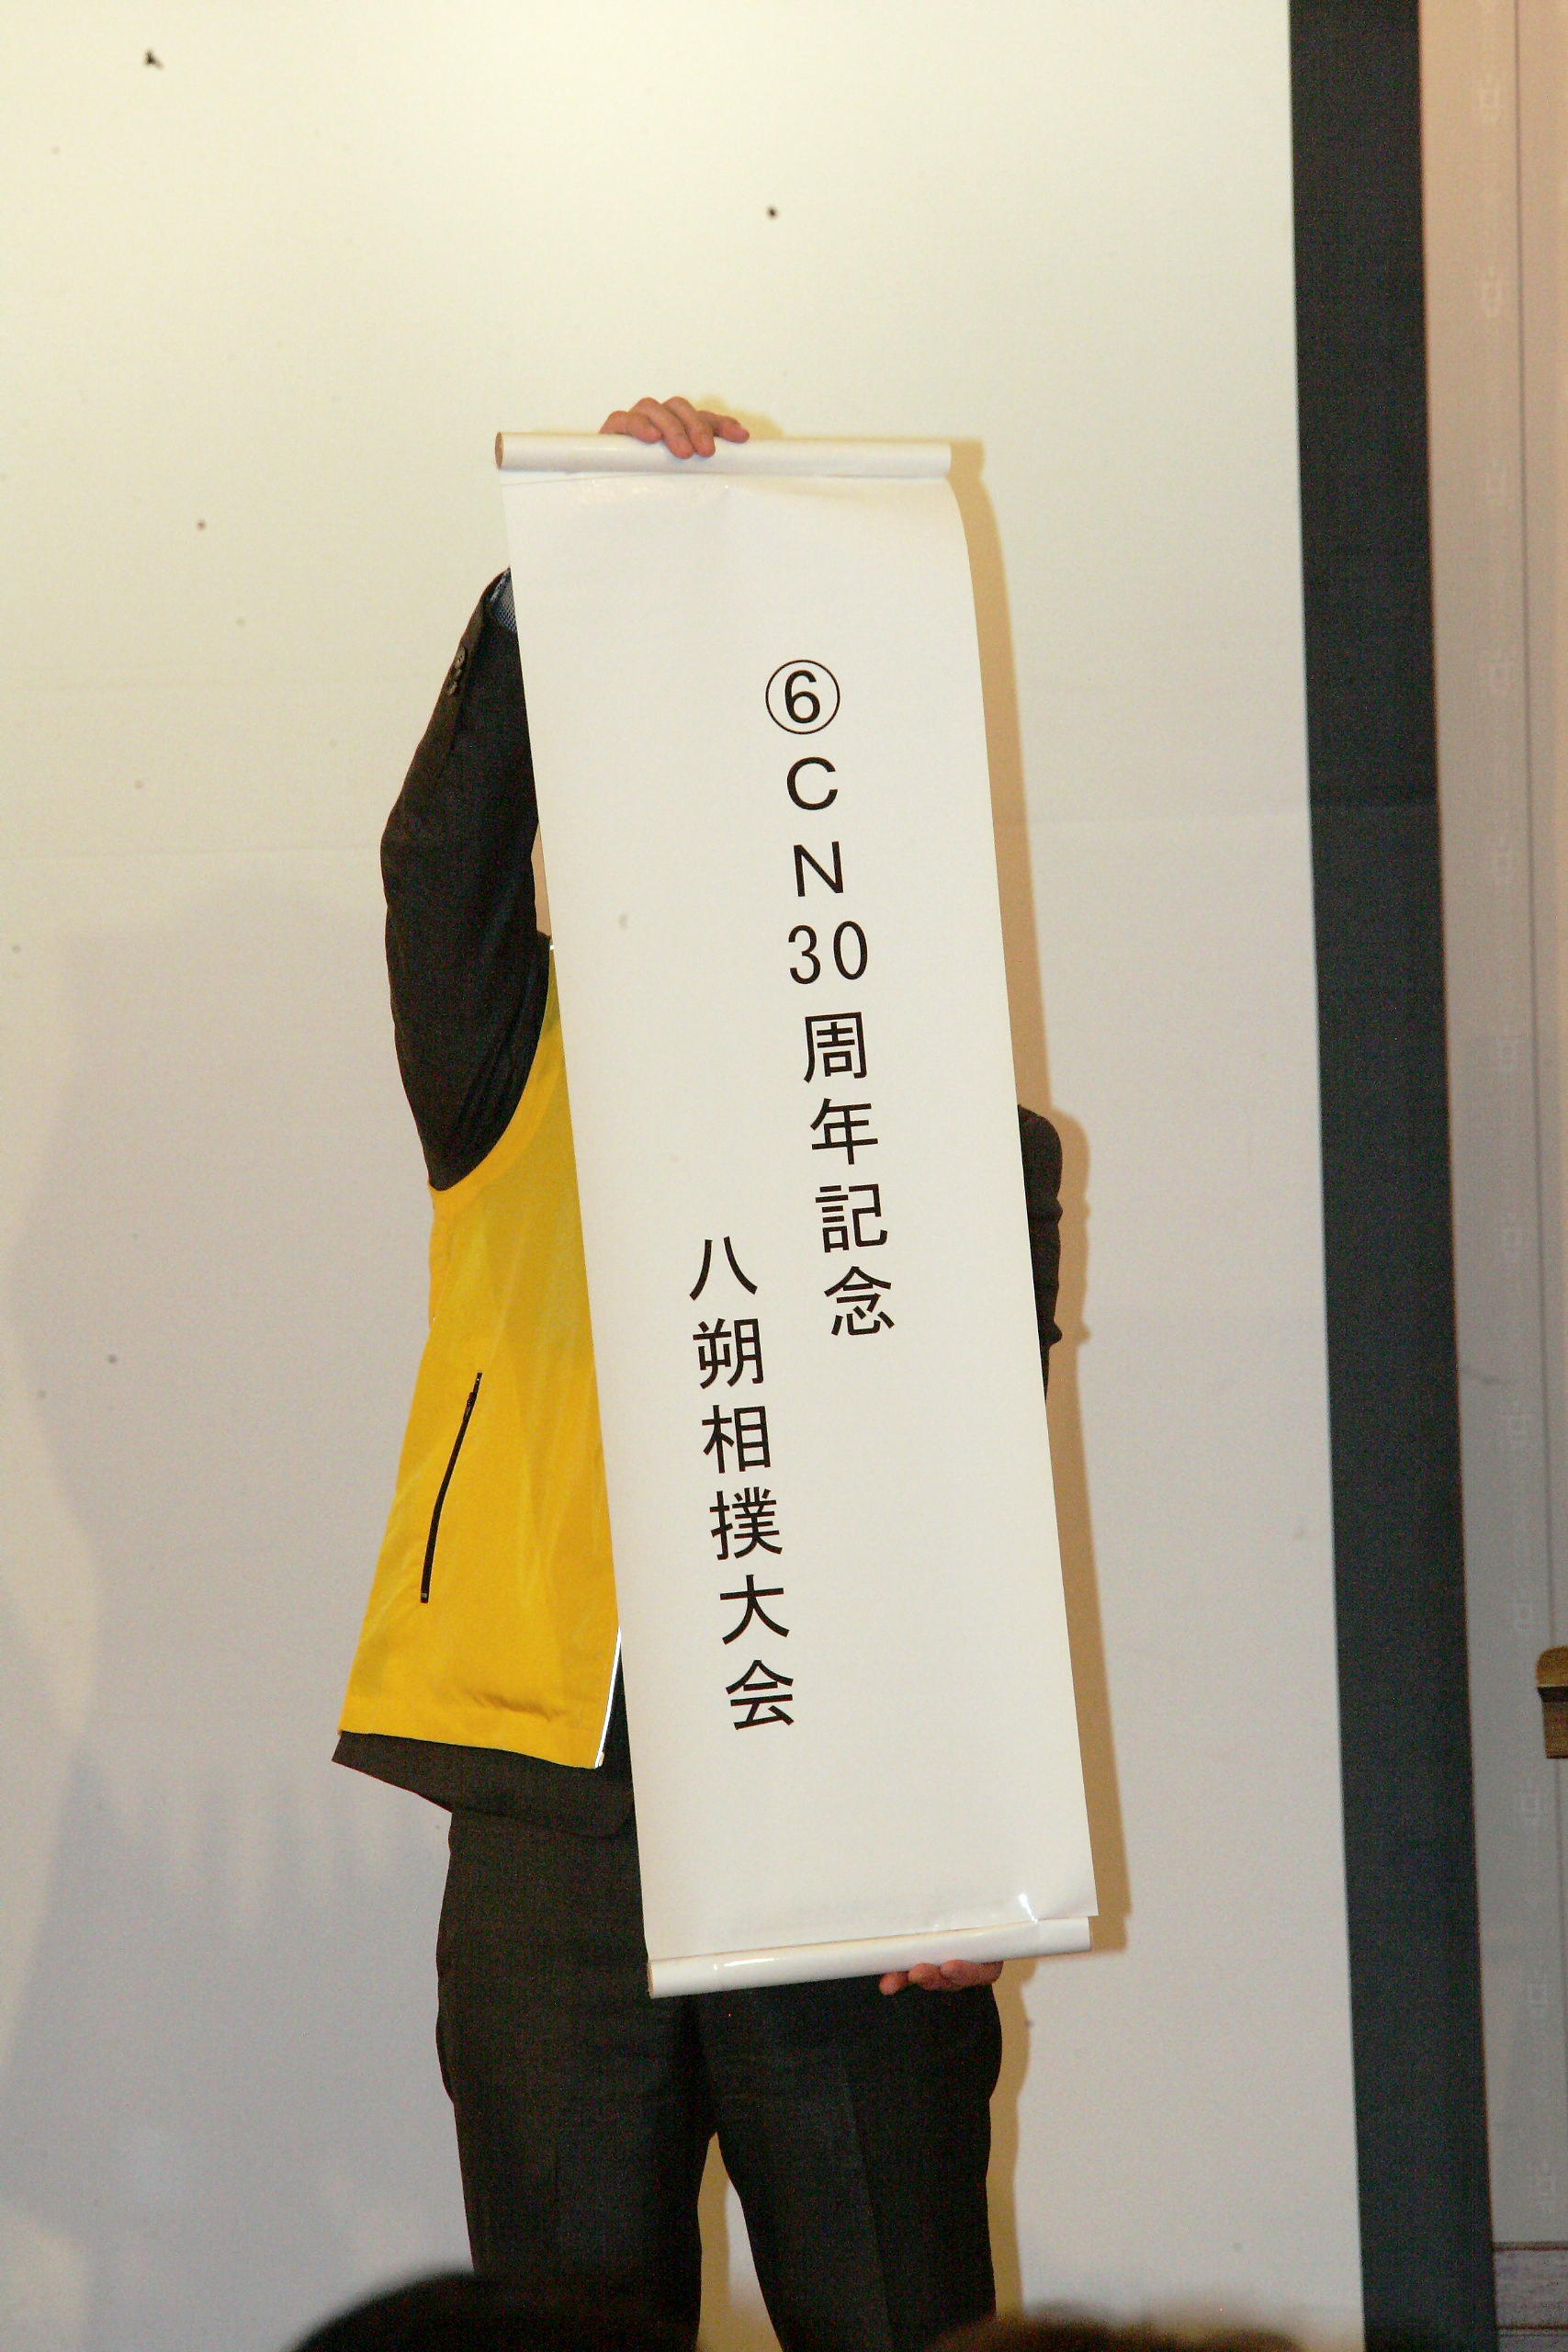 ⑥CN30周年記念
八朔相撲大会